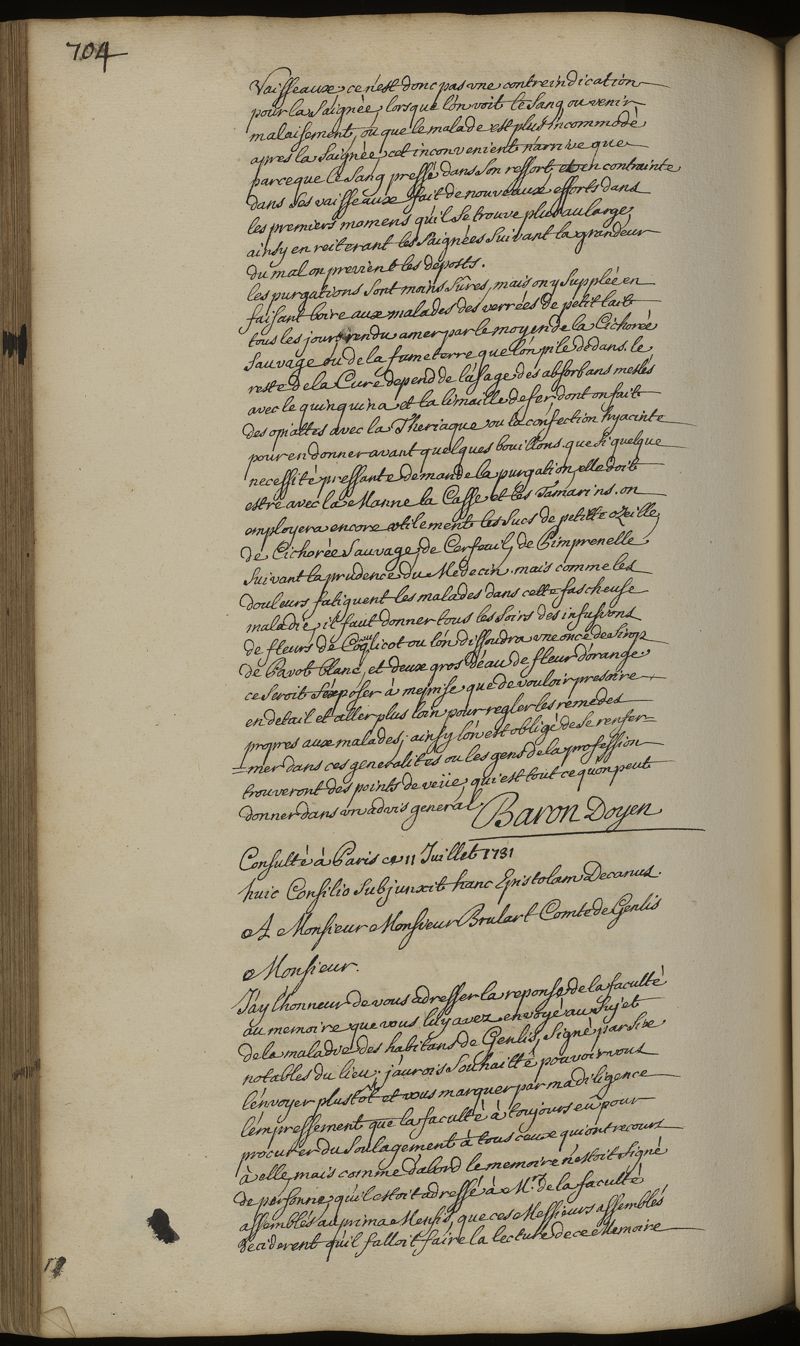 704
Vaisseaux, ce n'est donc pas une contreindication
pour la Saignée, lorsque l'on voit le Sang ou venir
malaisement, ou que le malade est plus incommodé
apres la Saignée, cet inconvenient n'arrive que
parceque le Sang pressé dans son ressort et en contrainte
dans ses vaisseaux fait de nouveaux efforts dans
les premiers momens qu'il se trouve plus au large,
ainsy en reiterant les Saignées Suivant la grandeur
du mal on previent les deposts.
les purgations sont moins sûres, mais on y Supplée en
faisant boire aux malades des verrées de petit lait
tous les jours rendu amer par le moyen de la Cichorée
Sauvage ou de la fumeterre que l'on pile dedans. le
reste de la Cure depend de l'usage des absorbans meslés
avec le quinquina et la limaille de fer dont on fait
des opiattes avec la Theriaque ou la confection hyacinte
pour en donner avant quelques bouillons. que si quelque
necessité pressante demande la purgation, elle doit
estre avec la Manne la Casse et les Tamarins. on
employera encore utilement les Sucs de petitte ozeille,
de Cichorée Sauvage, de Cerfeuil, de Pimprenelle
Suivant la prudence du Medecin. mais comme les
douleurs fatiguent les malades dans cette fascheuse
maladie, il faut donner tous les soirs des infusions
de fleurs de Coqlicot ou l'on dissoudra une once de Sirop
de Pavot blanc, et deux gros d'éau de fleur d'orange.
ce seroit s'éxposer à mesprise que de vouloir prescrire
en detail et aller plus loin pour regler les remedes
propres aux malades; ainsy l'on est obligé de se renfer=
=mer dans ces generalités ou les gens de la profession
trouveront des points de veüe, qui est tout ce qu'on peut
donner dans un advis general. Baron Doyen
Consulté à Paris ce 11 Juillet 1731
huic Consilio Subjunxit hanc Epistolam Decanus.
A Monsieur Monsieur Brulart Comte de Genlis
Monsieur.
J'ay l'honneur de vous adresser la reponse de la faculté
au memoire que vous luy avez envoyé au Sujet
de la maladie des habitans de Genlis, Signé par six
notables du lieu; j'aurois Souhaitté pouvoir vous
l'énvoyer plustôt et vous marquer par ma diligence
l'émpressement que la faculté à toujours eû pour
procurer du Soulagement à tous ceux qui ont recours
à elle, mais comme d'abord le memoire n'estoit Signé
de personne, qu'il estoit adressé à Mrs de la faculté
assemblés au prima Mensis, que ces Messieurs assemblés
deciderent qu'il falloit faire la lecture de ce Memoire